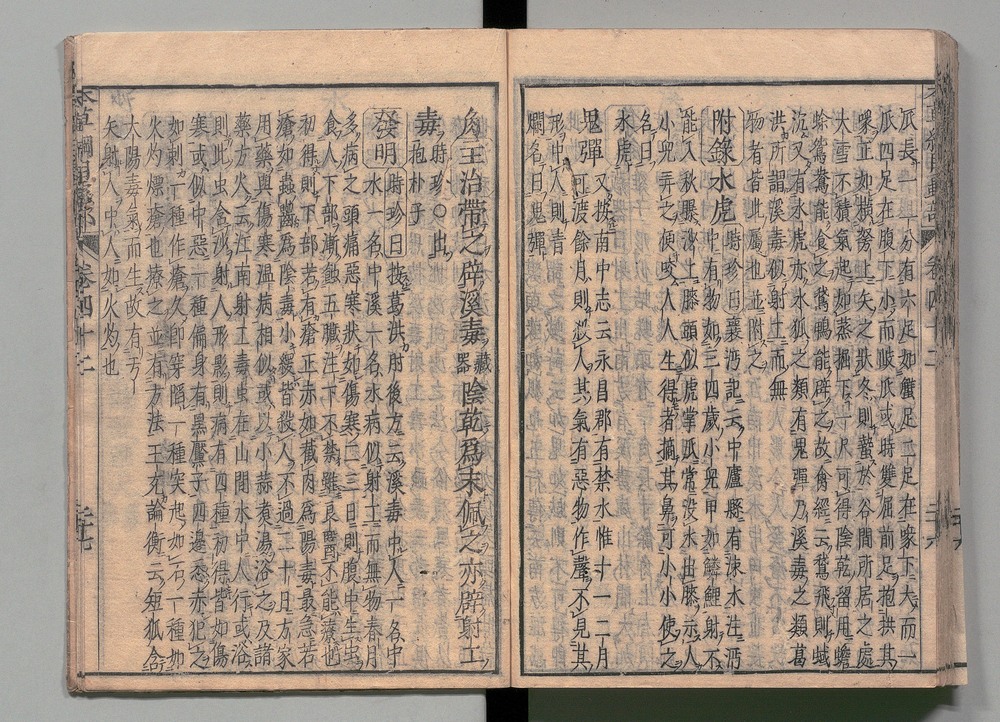 爪長一二分有六足如蟹足二足在喙下大而一
爪四足在腹下小而岐爪或時雙屈前足抱拱其
喙正如橫弩上矢之狀冬則蟄於谷間所居之處
大雪不積氣起如蒸掘下一尺可得陰乾留用蟾
蜍鴛鴦能食之鵞鴨能辟之故禽經云鵞飛則蜮
沉又有水虎亦水狐之類有鬼彈乃溪毒之類葛
洪所謂溪毒似射工而無
物者皆此屬也並附之
附錄水虎時珍曰襄沔記云中廬縣有涑水注沔
中有物如三四歲小兒甲如鱗鯉射不
能入秋曝沙上膝頭似虎掌爪常没水出膝示人
小兒弄之便咬人人生得者摘其鼻可小小使之
名曰
水虎
鬼彈又按南中志云永昌郡有禁水惟十一二月
可渡餘月則殺人其氣有惡物作聲不見其
形中人則青
爛名曰鬼彈
本草綱目蟲部 卷四十二 二十六
角主治帶之辟溪毒藏器陰乾爲末佩之亦辟射工
毒時珍○出抱朴子
發明時珍曰按葛洪肘後方云溪毒中人一名中
水一名中溪一名水病似射工而無物春月
多病之頭痛惡寒狀如傷寒二三日則腹中生虫
食人下部漸蝕五臟注下不禁雖良醫不能療也
初得則下部若有瘡正赤如截肉爲陽毒最急若
瘡如蟲齧爲陰毒小緩皆殺人不過二十日方家
用藥與傷寒温病相似或以小蒜煮湯浴之及諸
藥方又云江南射工毒虫在山間水中人行或浴
則此虫含沙射人形影則病有四種初得皆如傷
寒或似中惡一種偏身有黑黶子四邊悉赤犯之
如刺一種作瘡久卽穿陷一種突起如石一種如
火灼熛瘡也療之並有方法王充論衡云短狐含
太陽毒氣而生故有弓
矢射人中人如火灼也
本草綱目蟲部 卷四十二 二十七